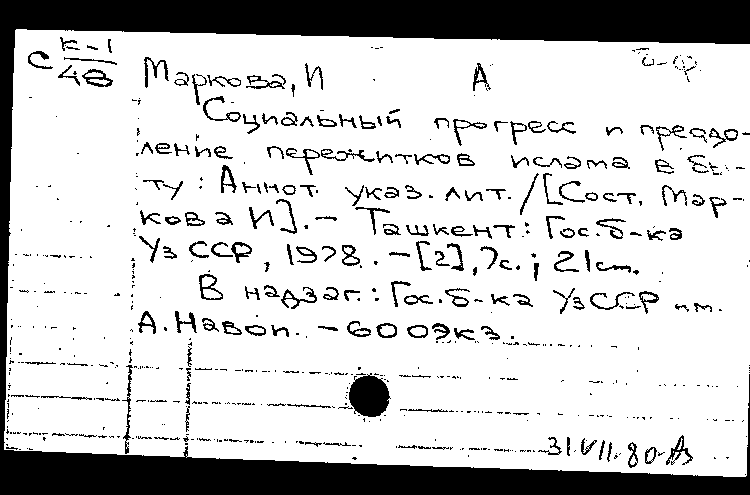 С К-1/48 Маркова, И А б-ф
Социальный прогресс и преодо-
ление пережитков ислама в бы-
ту: Аннот. указ. лит. / [Сост. Мар-
кова И]. – Ташкент: Гос. б-ка
УзССР, 1978. – [2], 7с.; 21см.
В надзаг.: Гос. б-ка УзССР им.
А. Навои. – 600экз.
31.VII.80